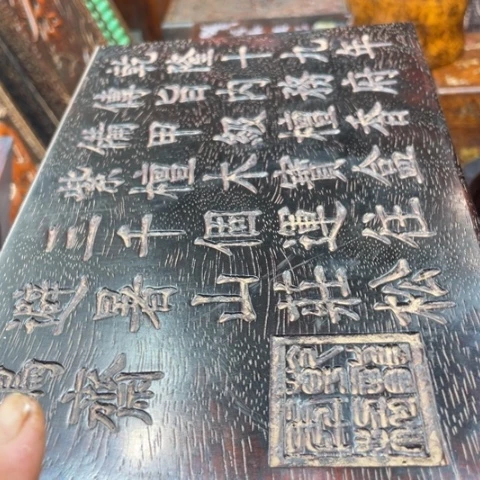 乾隆十九年
奉旨内務府
備甲級檀香
紫檀木寶盒
三千個運往
避暑山莊松
鶴齋